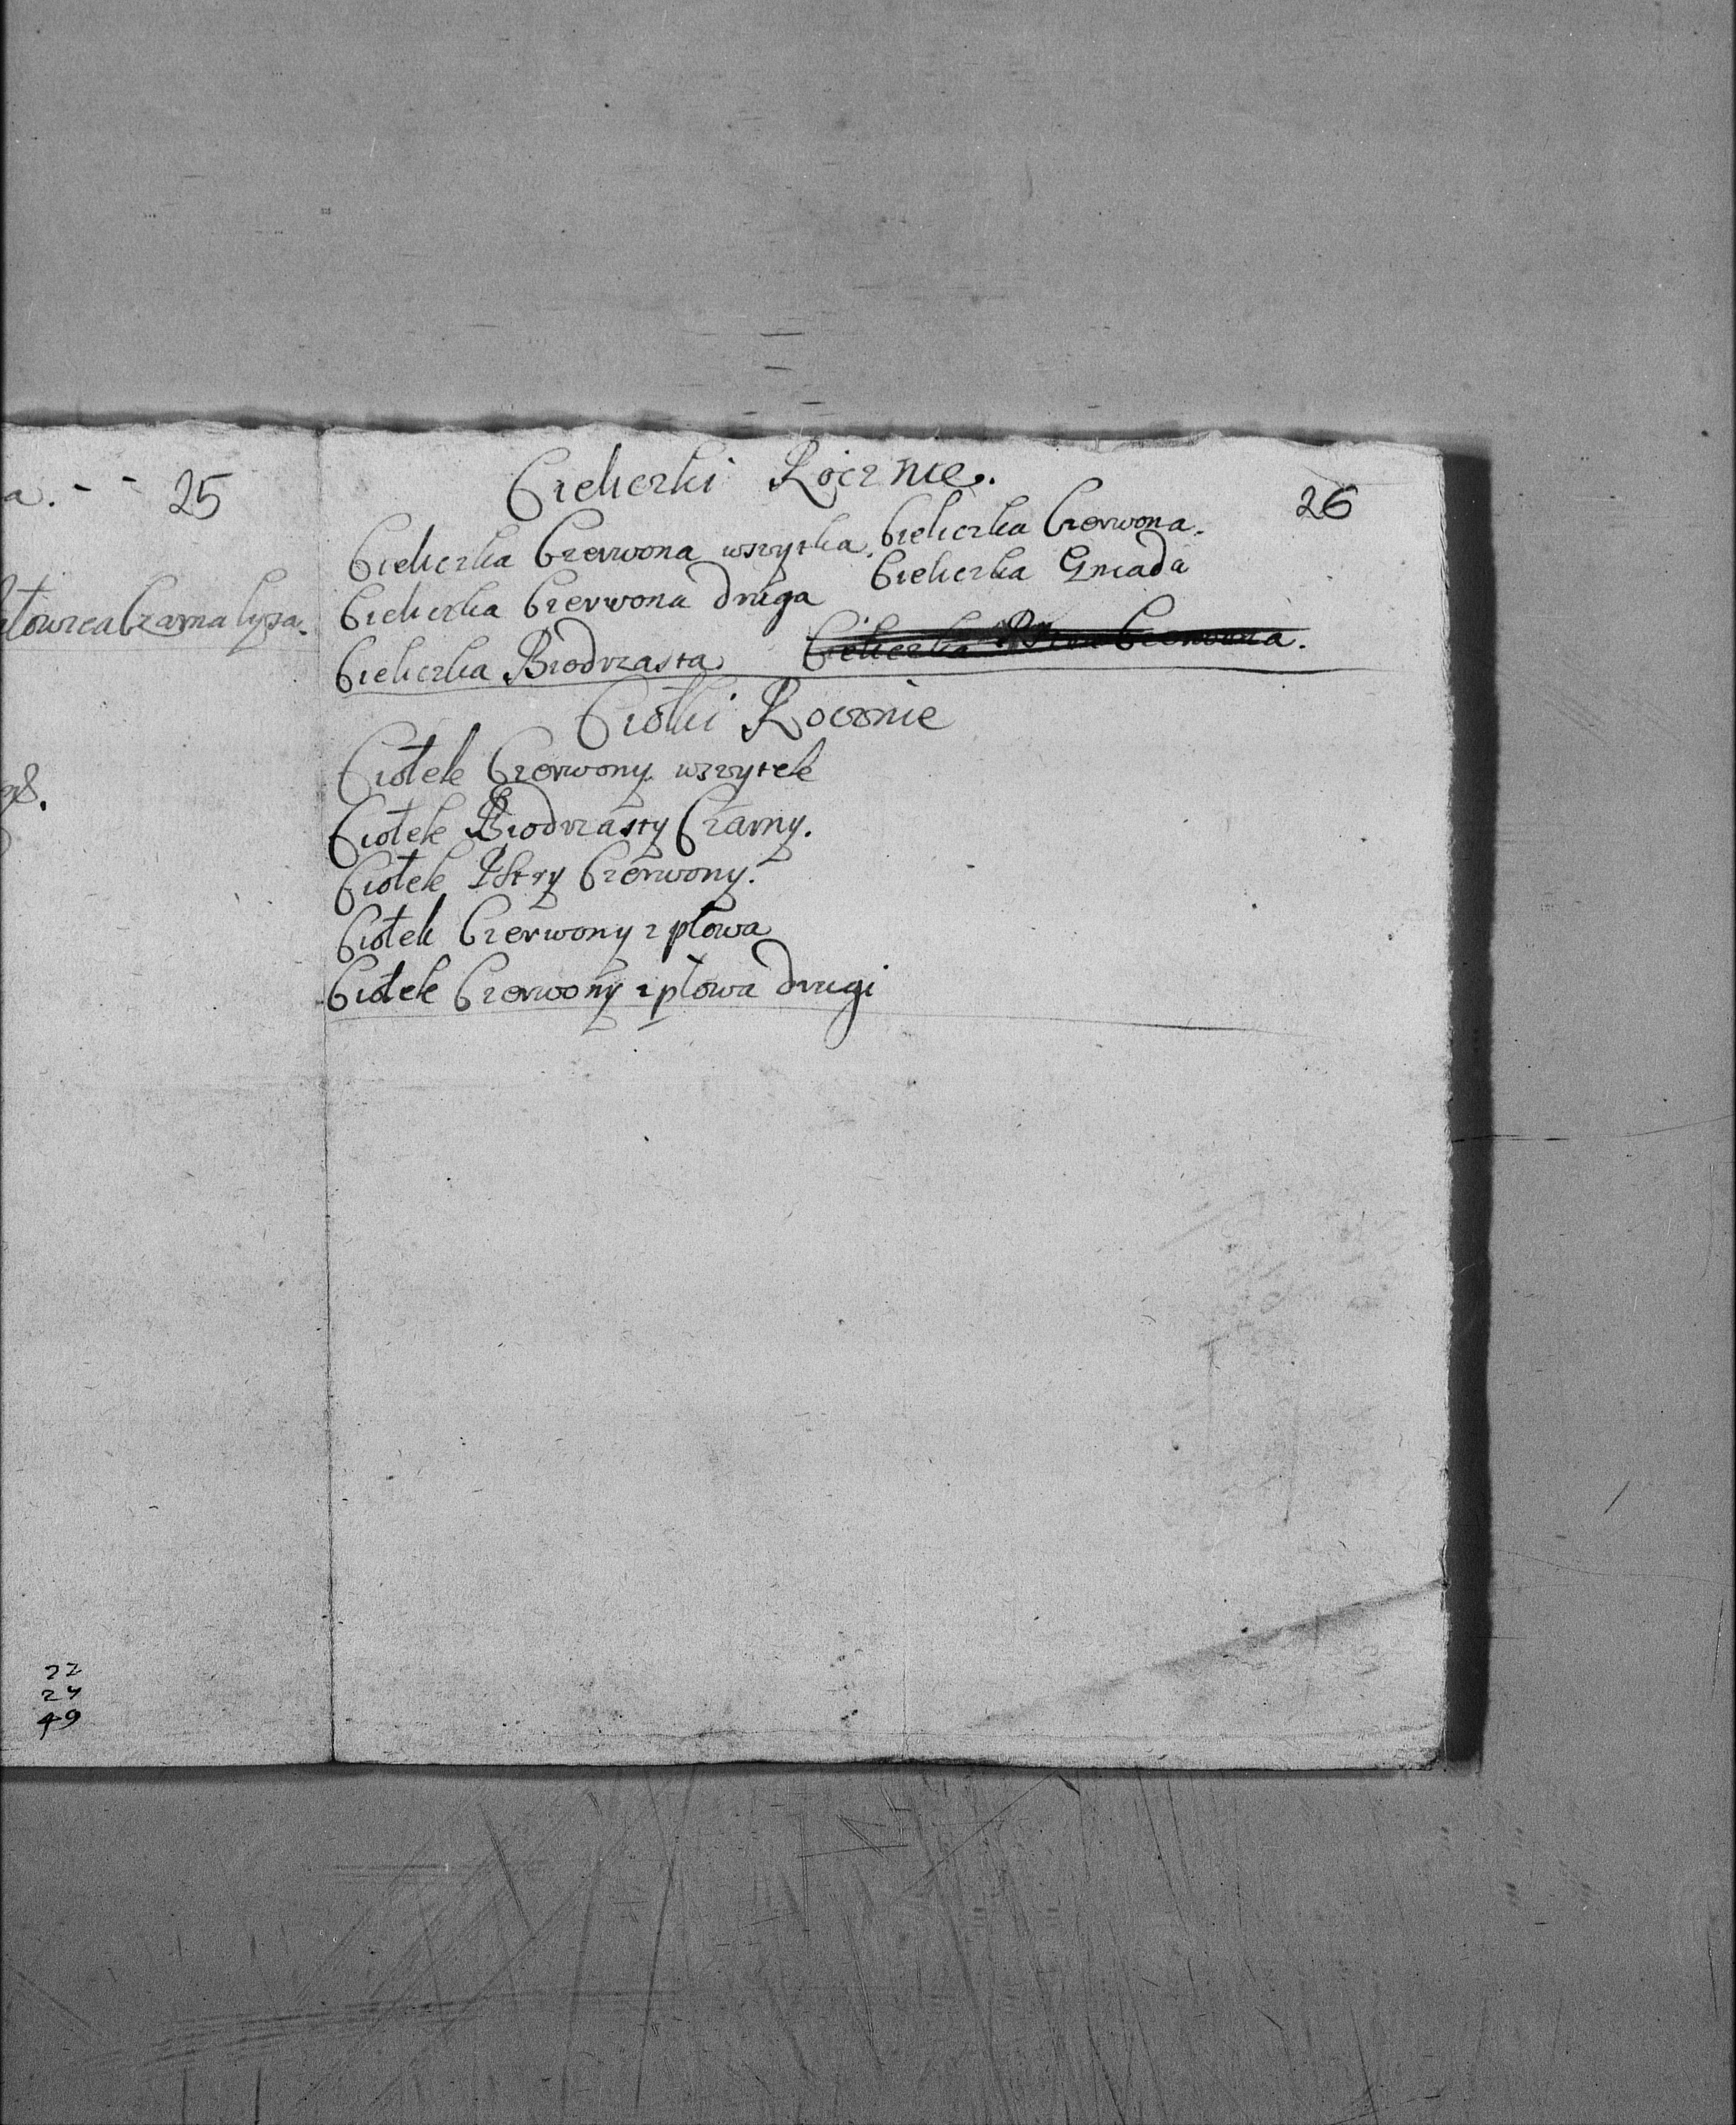 a. - - 25
łowica Czarna łysa.
22
24
49
26
Cieliczki Rocznie.
Cieliczka Czerwona wszytka. Cieliczka Czerwona.
Cieliczka Czerwona druga Cieliczka Gniada
Cieliczka Biodrzasta Cieliczka Czerwona.
Ciołki Rocznie
Ciołek Czerwony wszytek
Ciołek Biodrzasty Czarny.
Ciołek Pstry Czerwony.
Ciołek Czerwony z płowa
Ciołek Czerwony z płowa drugi